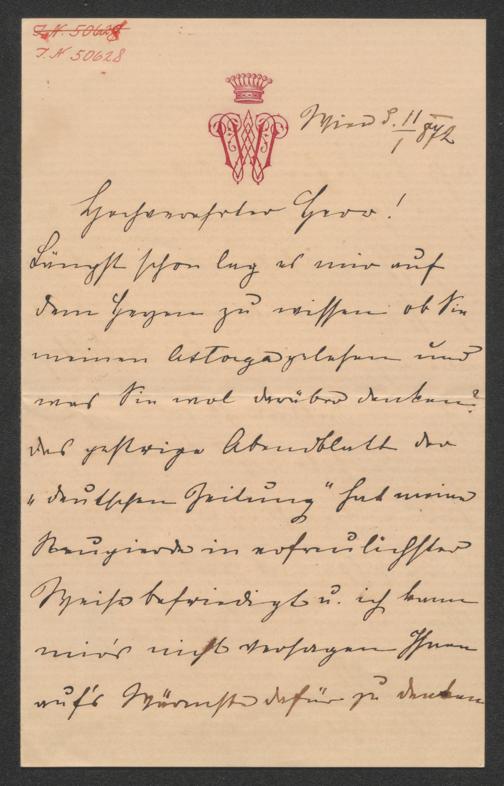 I. N. 50628
I. N. 50628
W
Wien d. 11/1
Hochverehrter Herr!
Längst schon lag es mir auf
dem Herzen zu wissen ob Sie
meinen Astorga gelesen und
was Sie wol darüber denken?
das gestrige Abendblatt der
„deutschen Zeitung" hat meine
Neugierde in erfreulichster
Weise befriedigt u. ich kann
mir's nicht versagen Ihnen
auf's Wärmste dafür zu danken